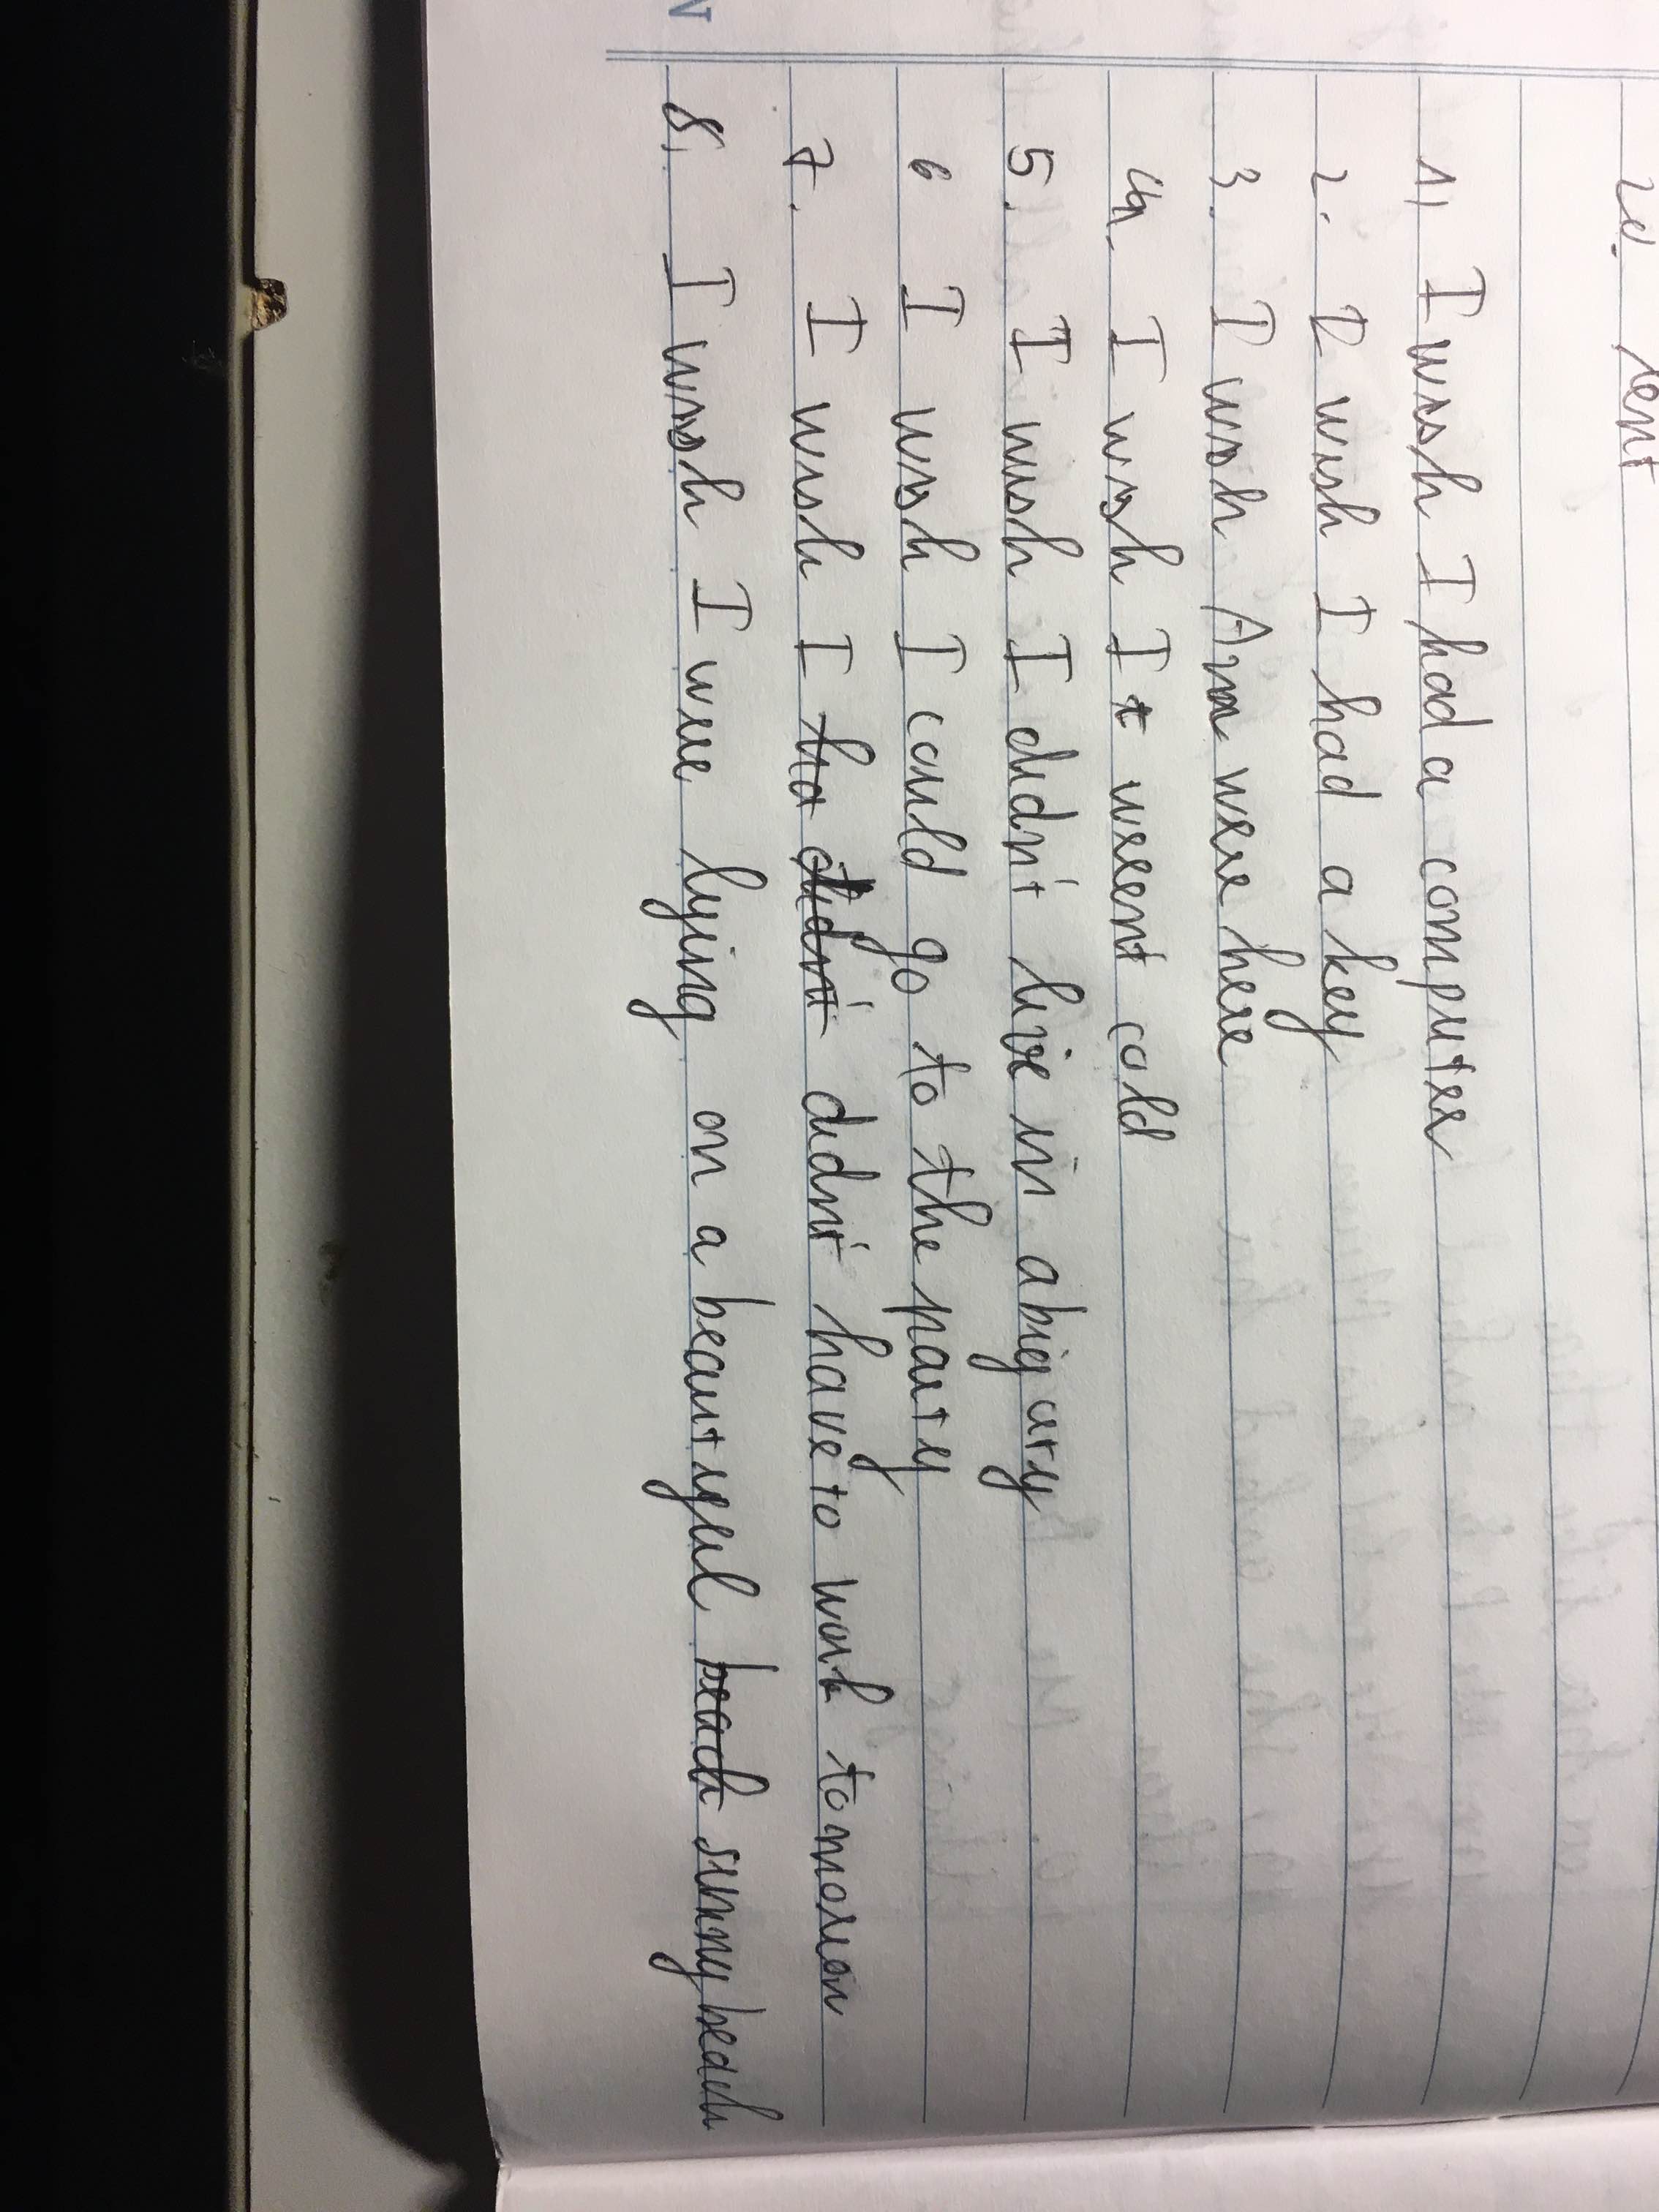 20. rent
1) I wish I had a computer
2. I wish I had a key
3. I wish Ann were here
4. I wish It weren't cold
5. I wish I didn't live in a big city
6 I wish I could go to the party
7. I wish I ha didn't didn't have to work tomorow
8. I wish I were lying on a beautyful beach sunny beach